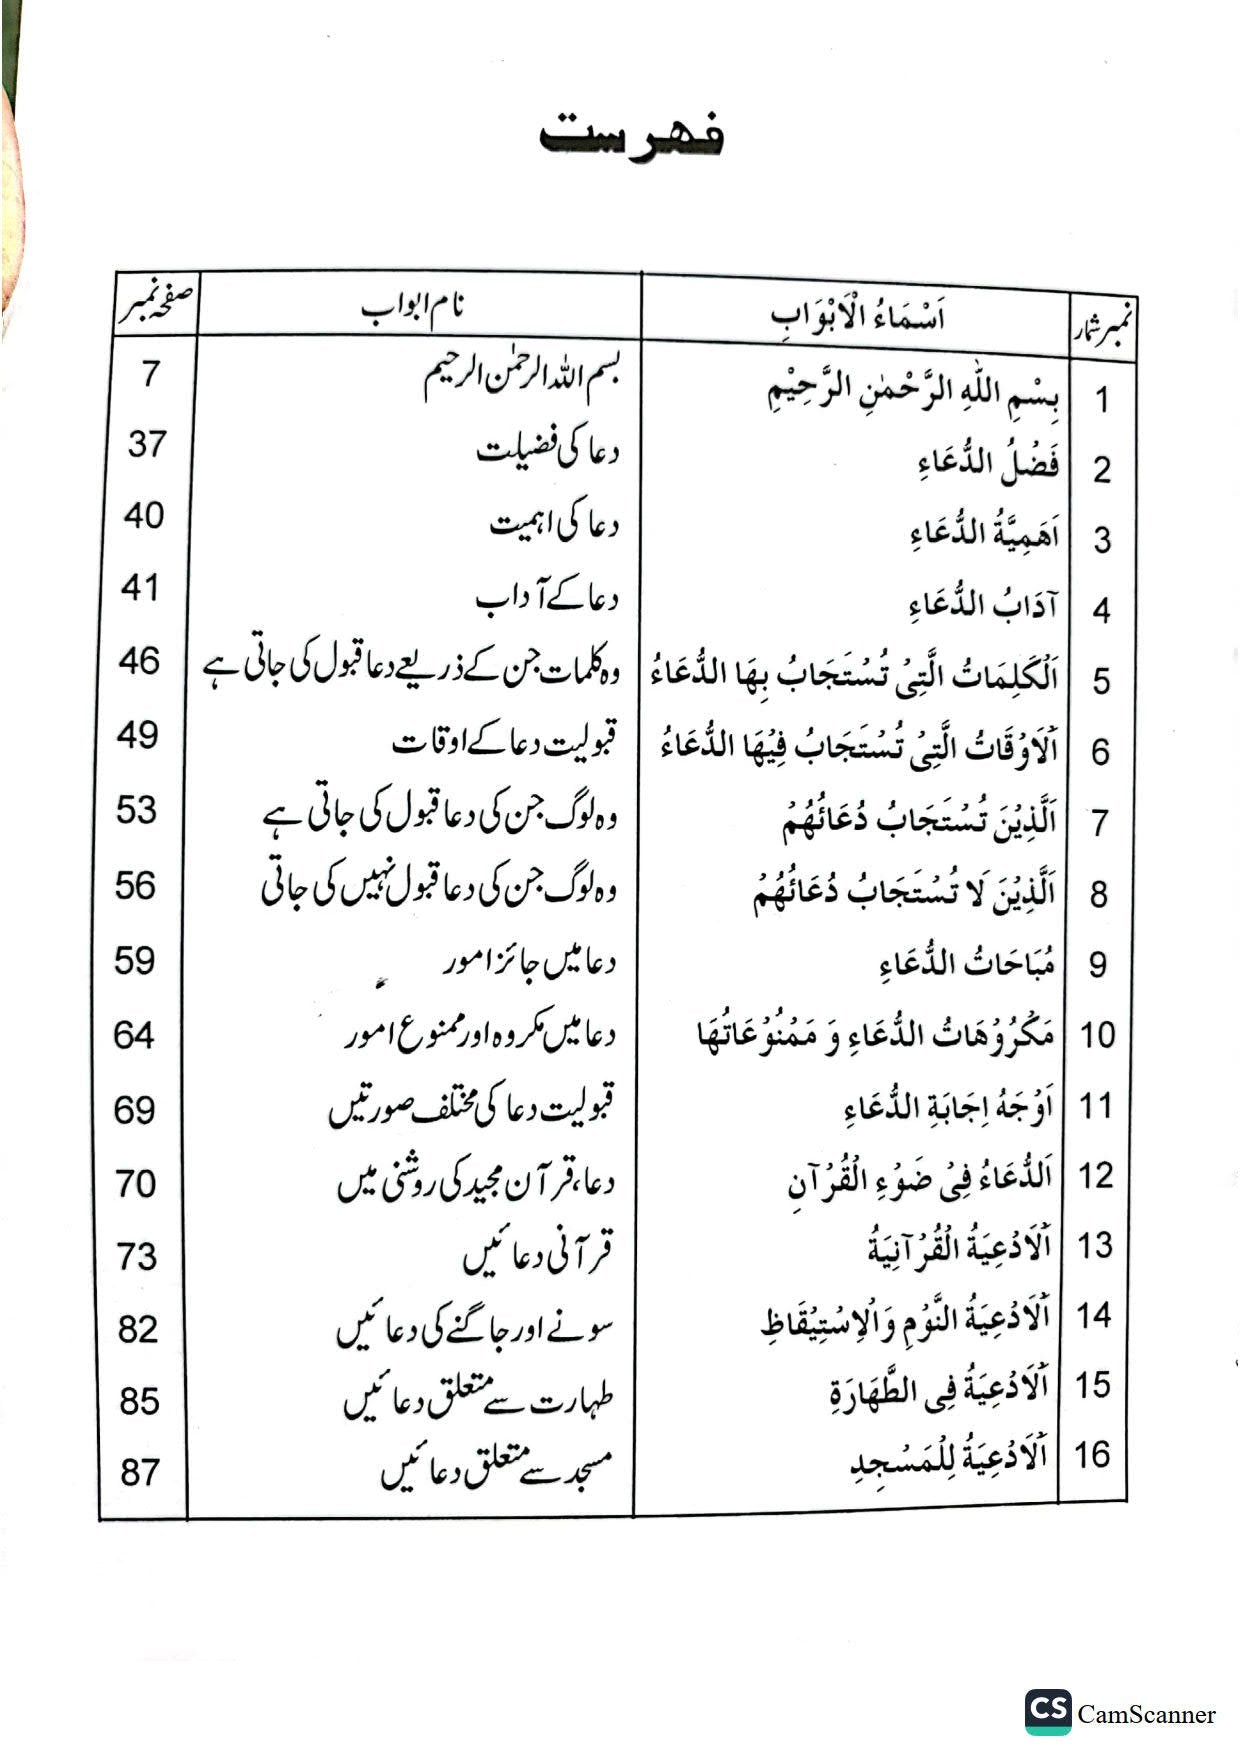 فهرست
نمبر شمار اَسْمَاءُ الْاَبْوَابِ نام ابواب صفحہ نمبر
1 بِسْمِ اللّٰهِ الرَّحْمٰنِ الرَّحِيْمِ بسم اللہ الرحمٰن الرحیم 7
2 فَضْلُ الدُّعَاءِ دعا کی فضیلت 37
3 اَهَمِيَّةُ الدُّعَاءِ دعا کی اہمیت 40
4 آدَابُ الدُّعَاءِ دعا کے آداب 41
5 اَلْكَلِمَاتُ الَّتِيْ تُسْتَجَابُ بِهَا الدُّعَاءُ وہ کلمات جن کے ذریعے دعا قبول کی جاتی ہے 46
6 اَلْاَوْقَاتُ الَّتِيْ تُسْتَجَابُ فِيْهَا الدُّعَاءُ قبولیت دعا کے اوقات 49
7 اَلَّذِيْنَ تُسْتَجَابُ دُعَائُهُمْ وہ لوگ جن کی دعا قبول کی جاتی ہے 53
8 اَلَّذِيْنَ لَا تُسْتَجَابُ دُعَائُهُمْ وہ لوگ جن کی دعا قبول نہیں کی جاتی 56
9 مُبَاحَاتُ الدُّعَاءِ دعا میں جائز امور 59
10 مَكْرُوْهَاتُ الدُّعَاءِ وَ مَمْنُوْعَاتُهَا دعا میں مکروہ اور ممنوع امور 64
11 اَوْجَهُ اِجَابَةِ الدُّعَاءِ قبولیت دعا کی مختلف صورتیں 69
12 اَلدُّعَاءُ فِيْ ضَوْءِ الْقُرْآنِ دعا، قرآن مجید کی روشنی میں 70
13 اَلْاَدْعِيَةُ الْقُرْآنِيَةُ قرآنی دعائیں 73
14 اَلْاَدْعِيَةُ النَّوْمِ وَالْاِسْتِيْقَاظِ سونے اور جاگنے کی دعائیں 82
15 اَلْاَدْعِيَةُ فِي الطَّهَارَةِ طہارت سے متعلق دعائیں 85
16 اَلْاَدْعِيَةُ لِلْمَسْجِدِ مسجد سے متعلق دعائیں 87
CS CamScanner